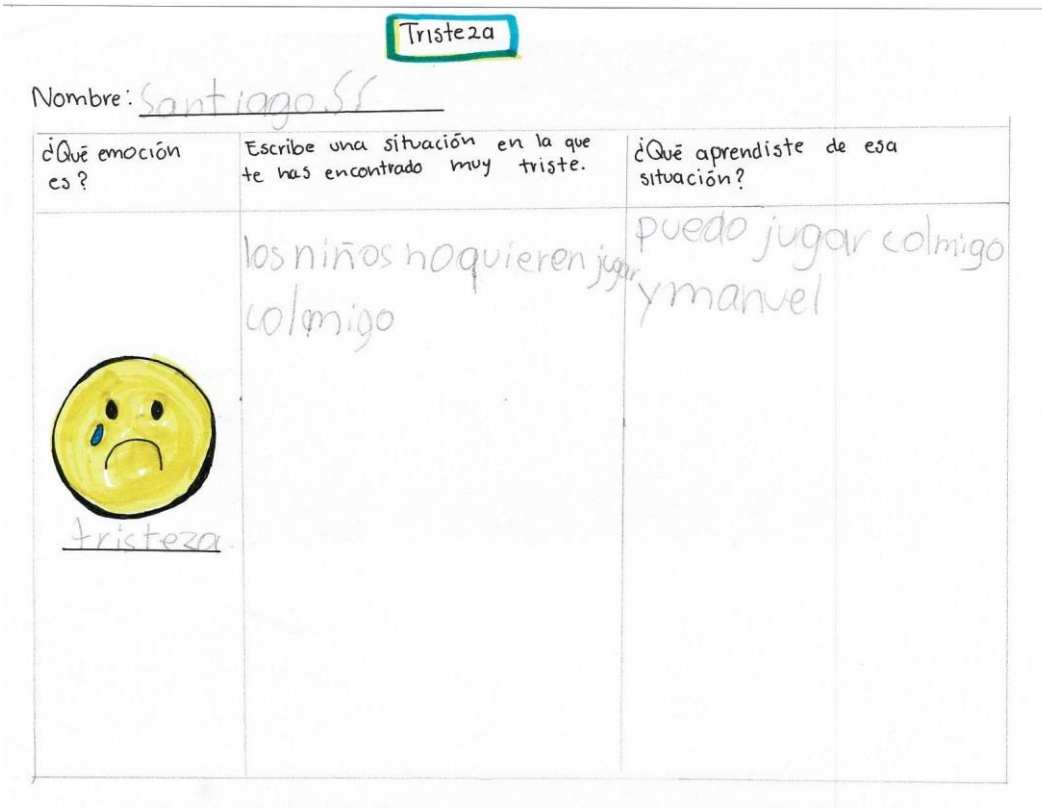 Tristeza
Nombre: Santiago SS
¿Qué emoción
es?
Escribe una situación en la que
te has encontrado muy triste.
¿Qué aprendiste de esa
situación?
tristeza
los niños no quieren jugar
colmigo
puedo jugar colmigo
y manuel